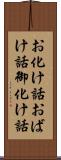 お化け話おば
け話御化け話